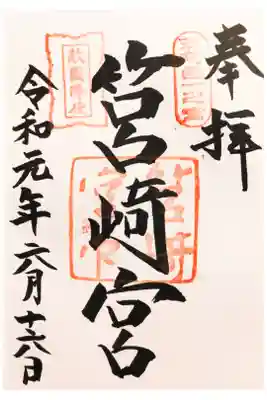 奉拝
筥崎宮
令和元年六月十六日